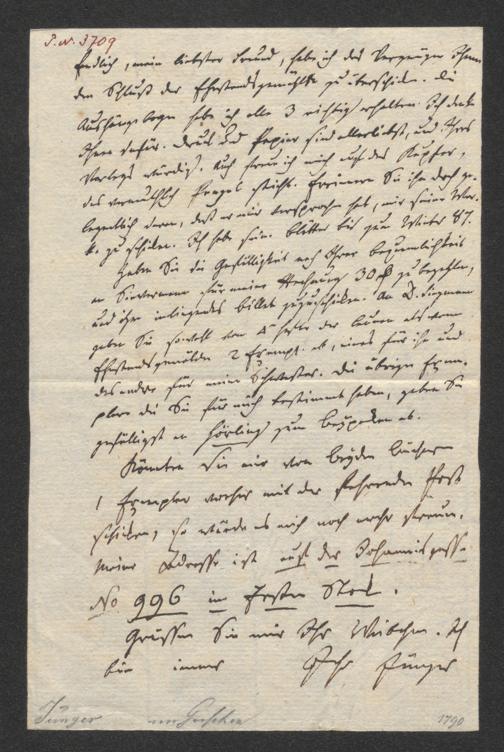 J. N. 3709
Endlich, mein liebster Freund, habe ich das Vergnügen Ihnen
den Schluß der Ehestandsgemählde zu überschicken. Die
Aushängebogen habe ich alle 3 richtig erhalten. Ich danke
Ihnen dafür. Druck und Papier sind allerliebst, und Ihres
Verlags würdig. Auch freue ich mich auf das Kupfer,
das vermuthlich Penzel sticht. Erinnern Sie ihn doch ge-
legentlich daran, daß er mir versprochen hat, mir seine Wer-
ke zu schicken. Ich habe seine Blätter bis zum Winter 87.
Haben Sie die Gefälligkeit nach Ihrer Bequemlichkeit
an für meine Rechnung 30 zu bezahlen,
und ihm inliegendes Billet zuzuschicken. An
geben Sie sowohl vom 4 der als vom
Ehestandsgemälden 2 Exempl. ab, eines für sie und
das andre für meine Schwester. Die übrigen Exem-
plare die Sie für mich bestimmt haben, geben Sie
gefälligst an Hörling zum Beypacken ab.
Könnten Sie mir von beyden Büchern
1 Exemplar vorher mit der fahrenden Post
schicken, so würde es mich noch mehr freuen.
Meine Adresse ist auf der Johannisgasse
No. 996 im Ersten Stock.
Grüssen Sie mir Ihr Weibchen. Ich
bin immer Ihr Jünger
Jünger an Göschen 1790